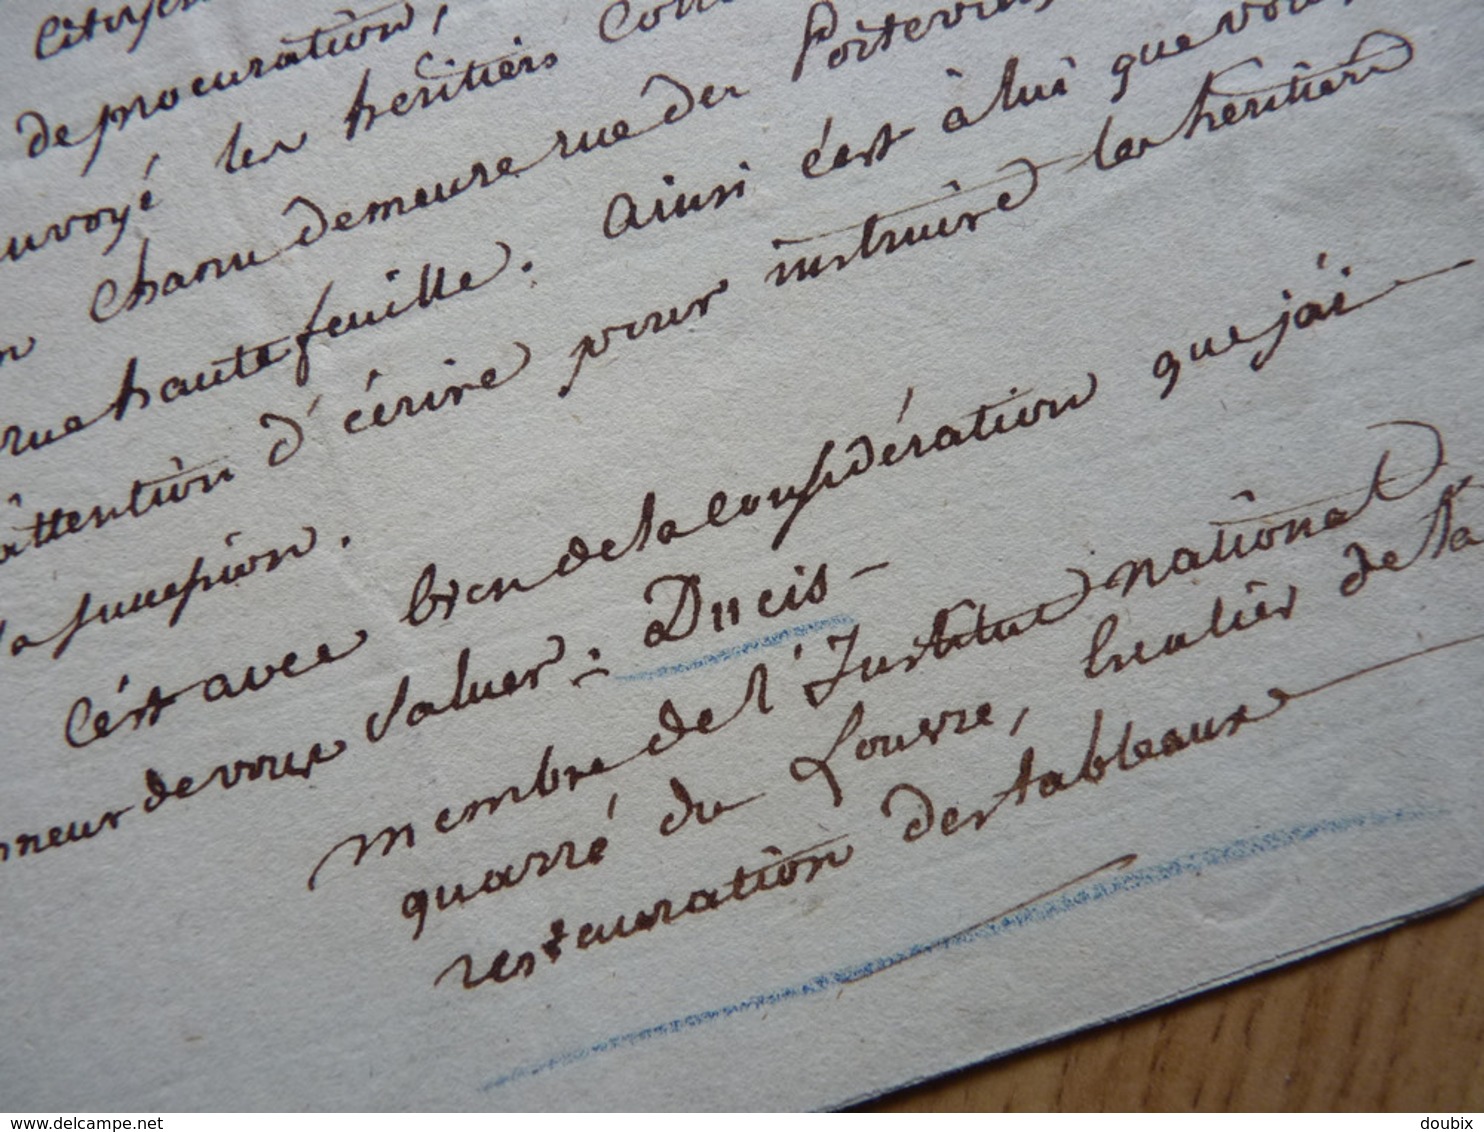 citoyen
de procuration,
envoyé les héritiers
chanu demeure rue des Poitevins
rue hautefeuille. ainsi c'est à lui que vous
attention d'écrire pour instruire les héritiers
la succession.
C'est avec bien de la considération que j'ai
nneur de vous saluer. Ducis
membre de l'Institut national
quarré du Louvre, attelier de la
restauration des tableaux
doubix